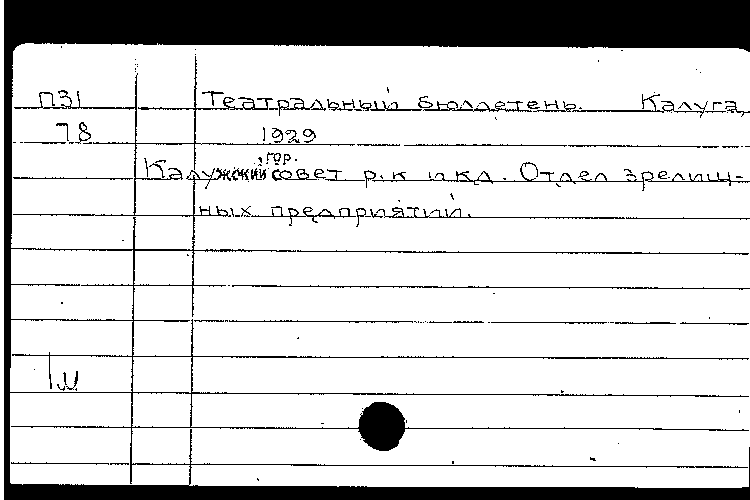 П31 Театральный бюллетень. Калуга,
78 1929
Калужский гор. совет р.к и кд. Отдел зрелищ-
ных предприятий.
1м